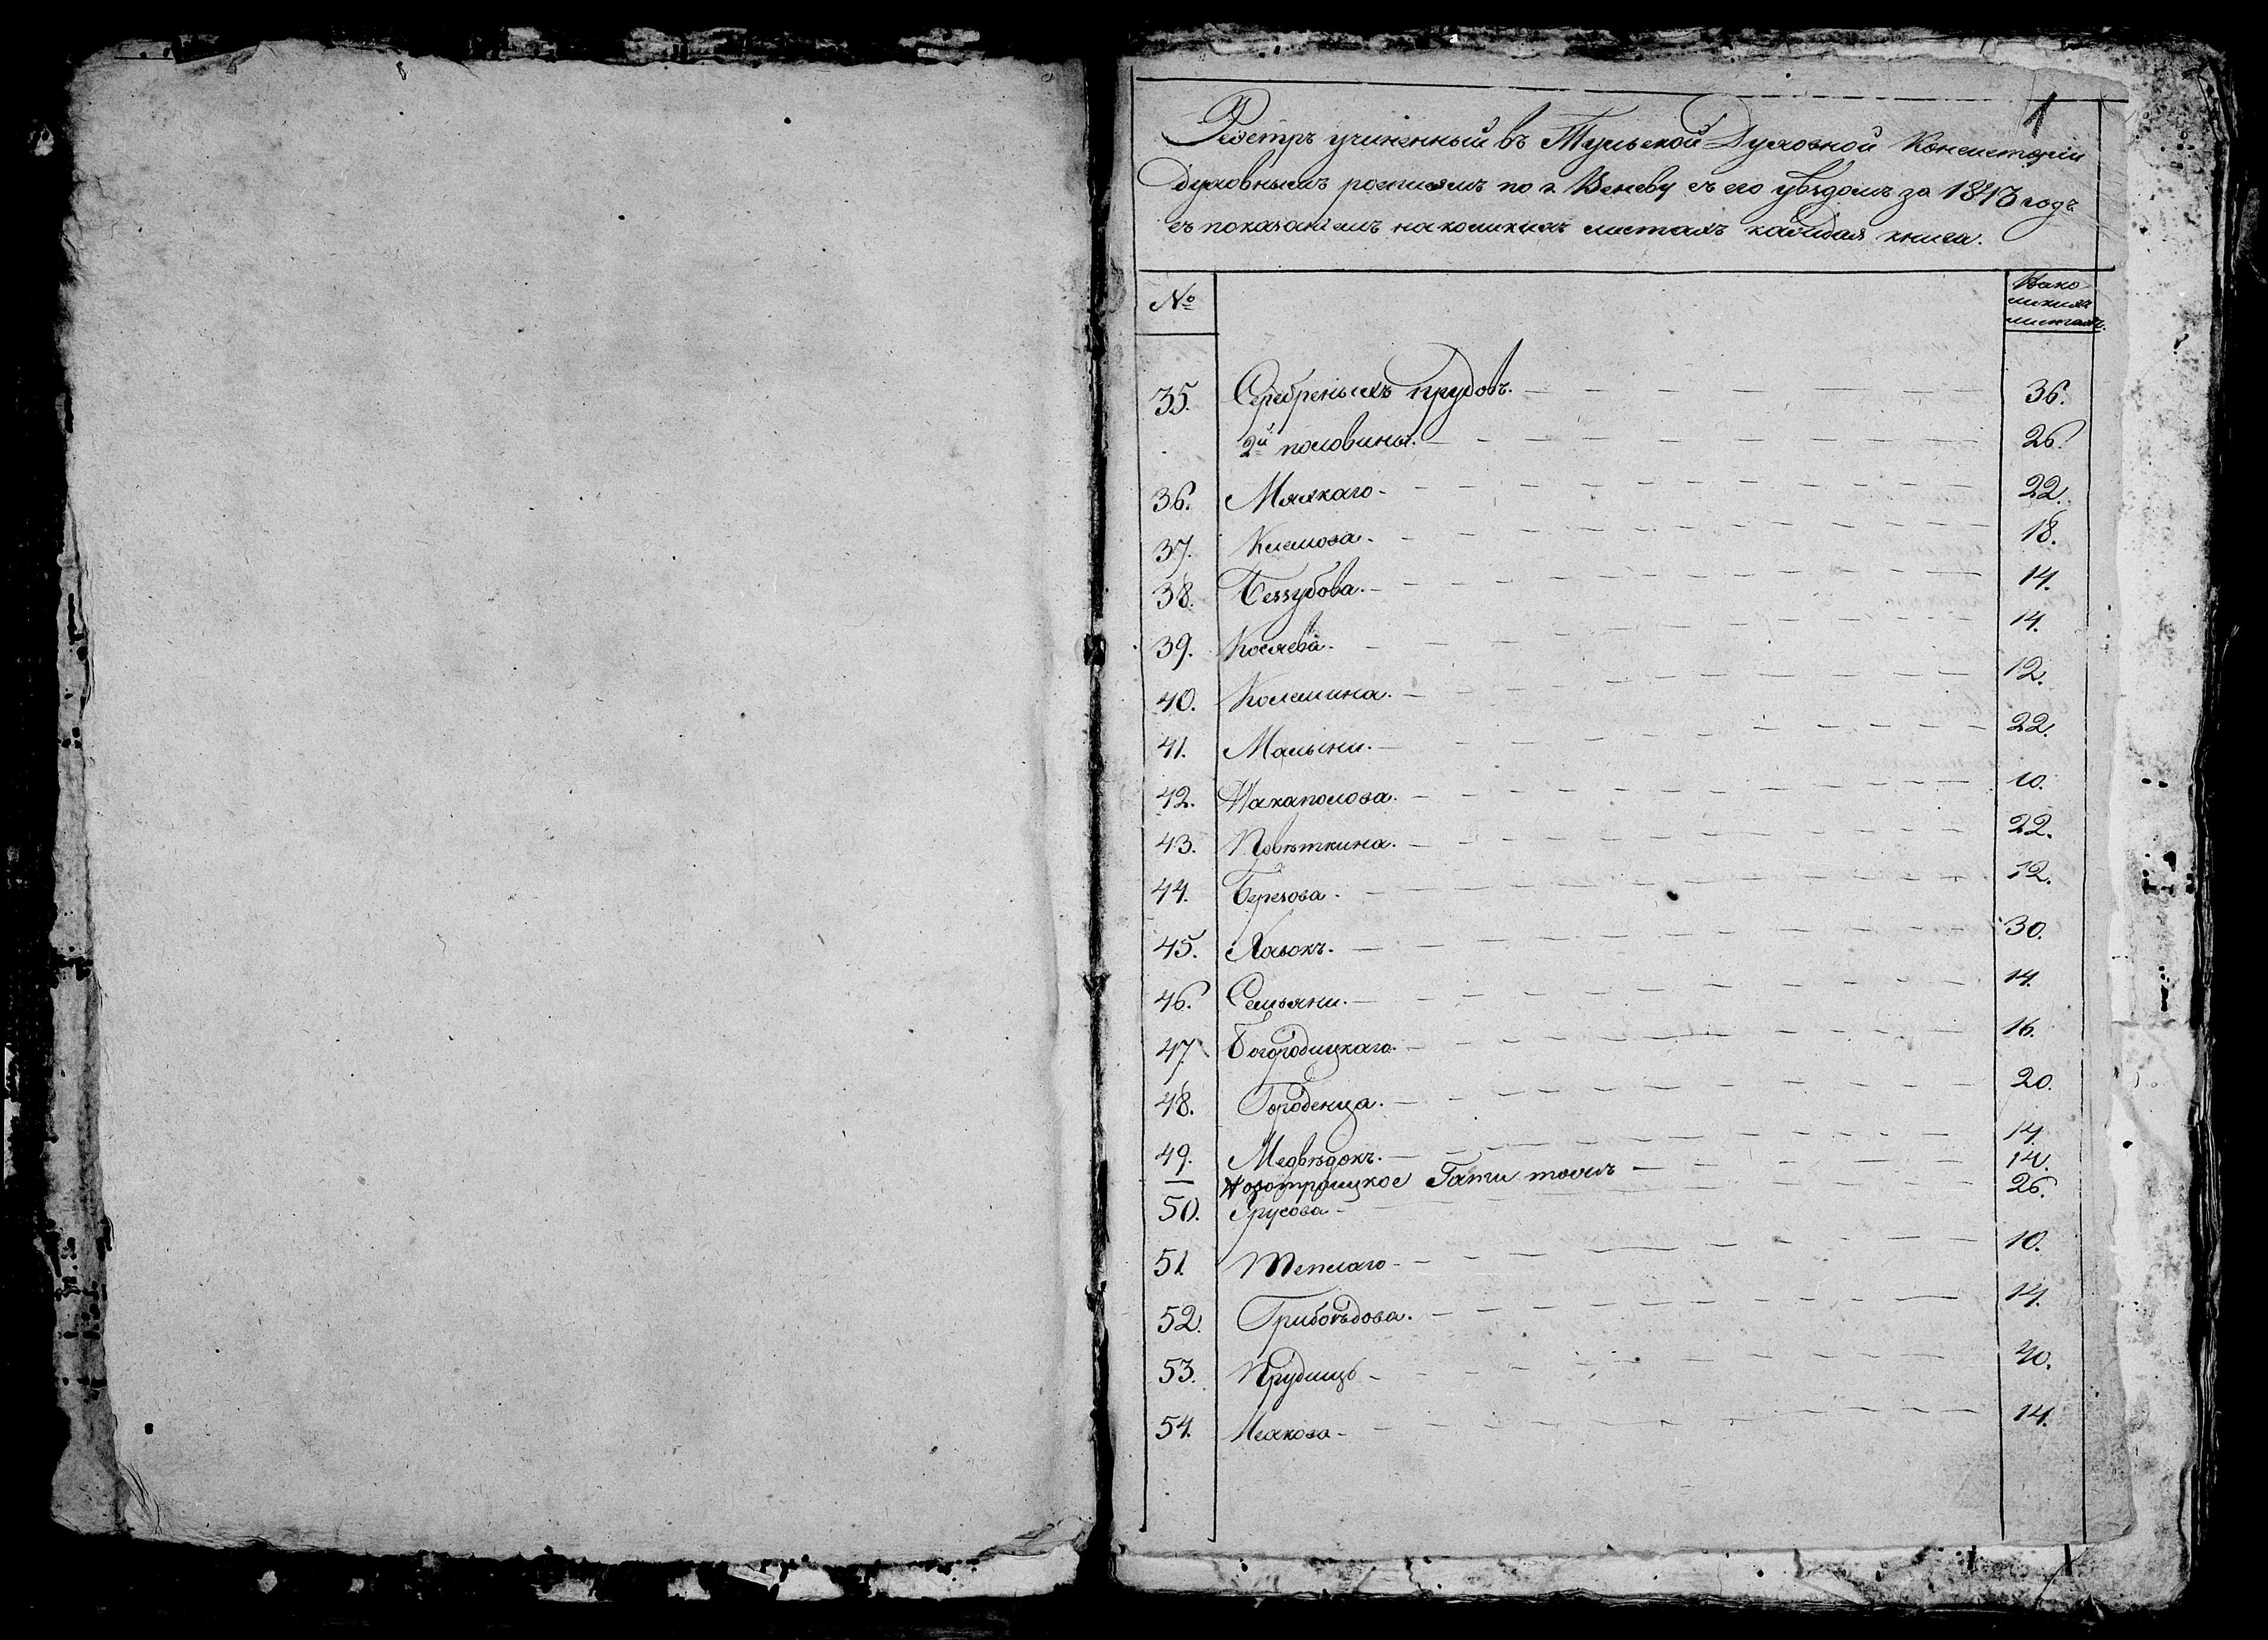 1
Реэстръ учиненный въ Тульской Духовной Консисторіи
духовнымъ росписямъ по г. Веневу съ его уѣздомъ за 1843 годъ
съ показаніемъ на коликихъ листахъ каждая книга.
№ На ко-
ликихъ
листахъ.
35. Серебреныхъ прудовъ. 36.
2й половины. 26.
36. Мяскаго 22.
37. Клемова. 18.
38. Беззубова. 14.
39. Косяева. 14.
40. Колемина. 12.
41. Малыни. 22.
42. Накаполова. 10.
43. Повѣткина. 22.
44. Березова. 12.
45. Лавокъ. 30.
46. Семьяни. 14.
47. Богородицкаго. 16.
48. Городенца. 20.
49. Медвѣдокъ. 14.
— Новотроицкое Гати тожъ 14.
50. Урусова 26.
51. Теплаго 10.
52. Грибоѣдова. 14.
53. Прудищь 40.
54. Исакова 14.